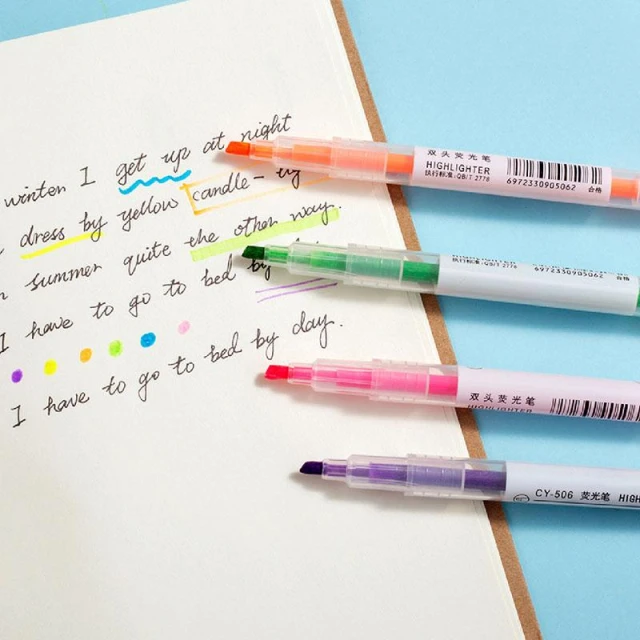 winter I get up at night
dress by yellow candle-
summer quite the other way.
I have to go to bed by
I have to go to bed by day.
双头荧光笔
HIGHLIGHTER
执行标准:QB/T 2778
6972330905062
合格
执行标准:QB/T 2778
6972330905062
合格
双头荧光笔
HIGHLIGHTER
CY-506 荧光笔